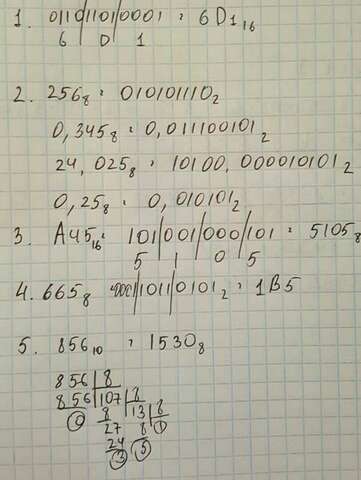 1. 0110|1101|0001 = 6D1₁₆
6 D 1
2. 256₈ = 010101110₂
0,345₈ = 0,011100101₂
24,025₈ = 10100,000010101₂
0,25₈ = 0,010101₂
3. A45₁₆ = 101|001|000|101 = 5105₈
5 1 0 5
4. 665₈ 0001|1011|0101₂ = 1B5
5. 856₁₀ = 1530₈
856|8
856|107|8
0 8 13|8
27 8 1
24 5
3